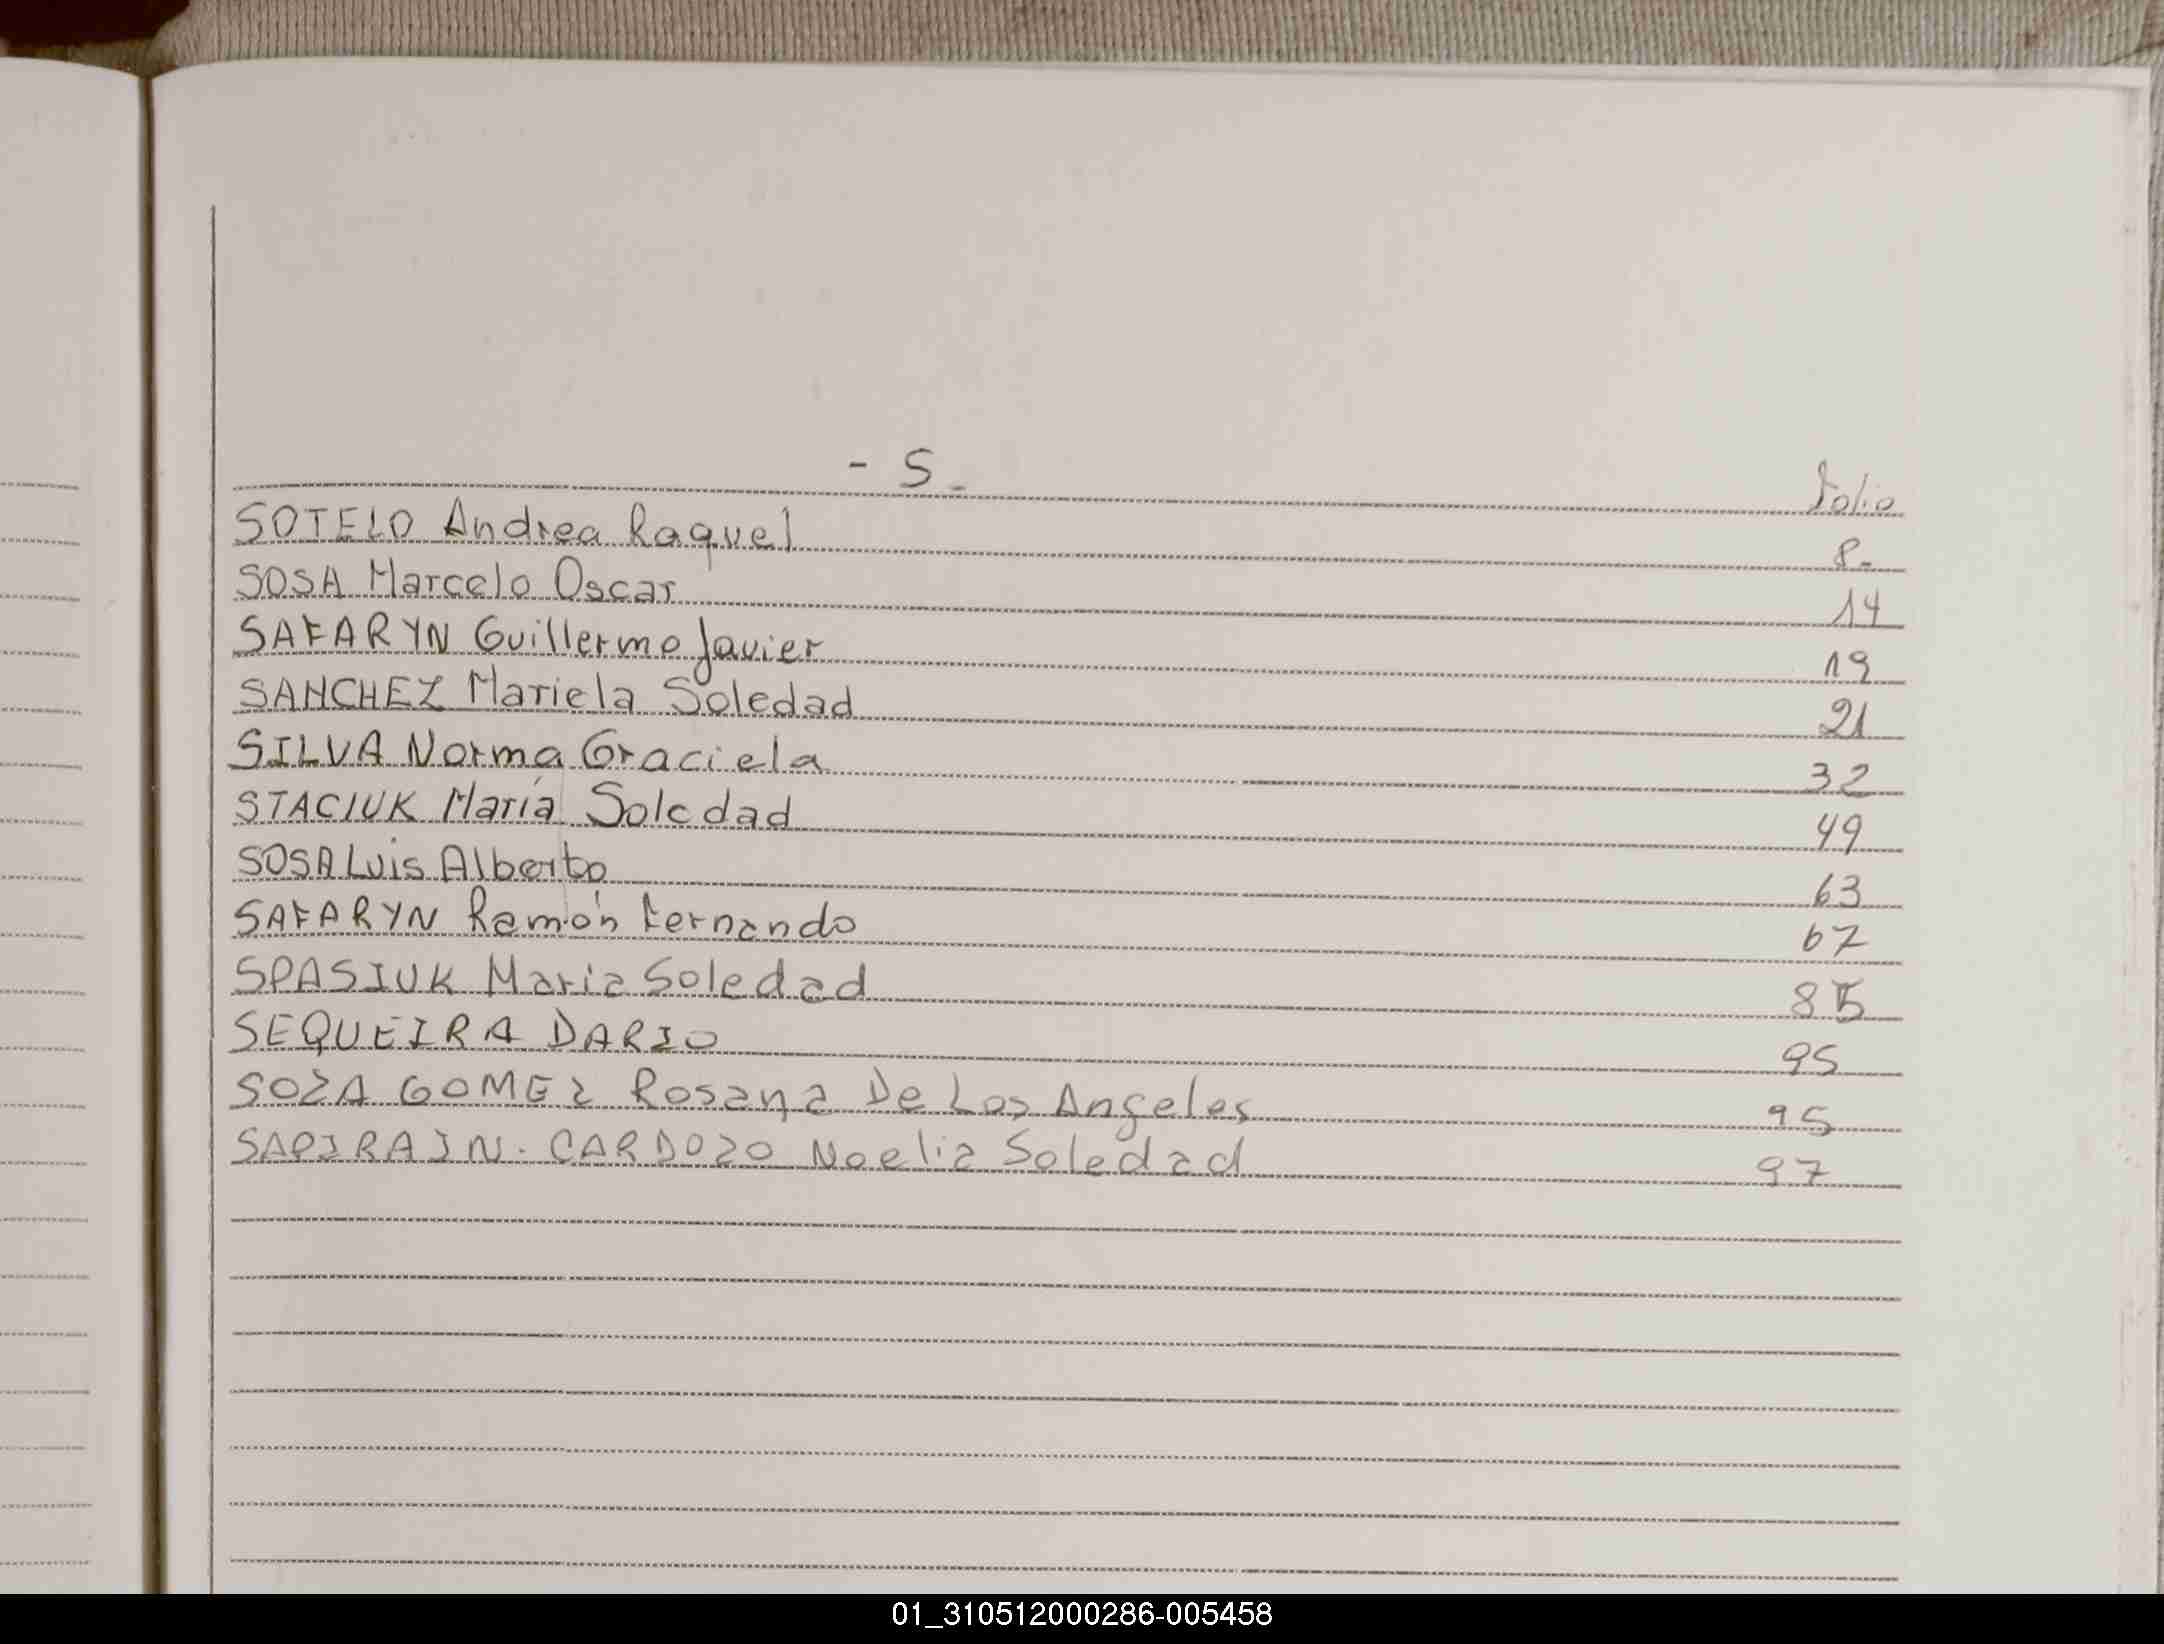 - S -
Folio
SOTELO Andrea Raquel 8-
SOSA Marcelo Oscar 14
SAFARYN Guillermo Javier 19
SANCHEZ Mariela Soledad 21
SILVA Norma Graciela 32
STACIUK María Soledad 49
SOSA Luis Alberto 63
SAFARYN Ramón Fernando 67
SPASIUK Maria Soledad 85
SEQUEIRA DARIO 95
SOZA GOMEZ Rosana De Los Angeles 95
SAPIRAIN. CARDOZO Noelia Soledad 97
01_310512000286-005458